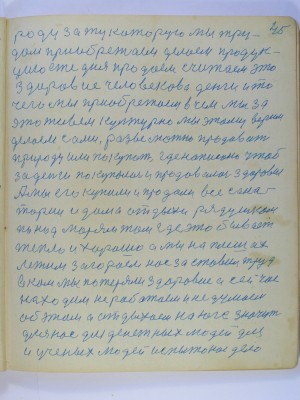 45
роду за ту которую мы тру-
дом приобретаем делаем продук-
цию сже дня продаем считаем это
здоровие человекова деньги то
чего мы приобретаем всем мы за
это живем культурно мы этому верим
делаем сами, разве можно продавать
природу или покупать, где написано чтоб
за деньги покупалося и продовалось здоровье
А мы его купили и продали все сана-
тории и дома отдыха рядушком
под морем там где это бывает
тепло и хорошо а мы на пляжах
лежим загораем нас заставил труд
в ком мы потеряли здоровие а сейчас
находим не работаем и не думаем
об этом а отдыхаем на юге значит
для нас для денежных людей для
и ученых людей испытоное дело